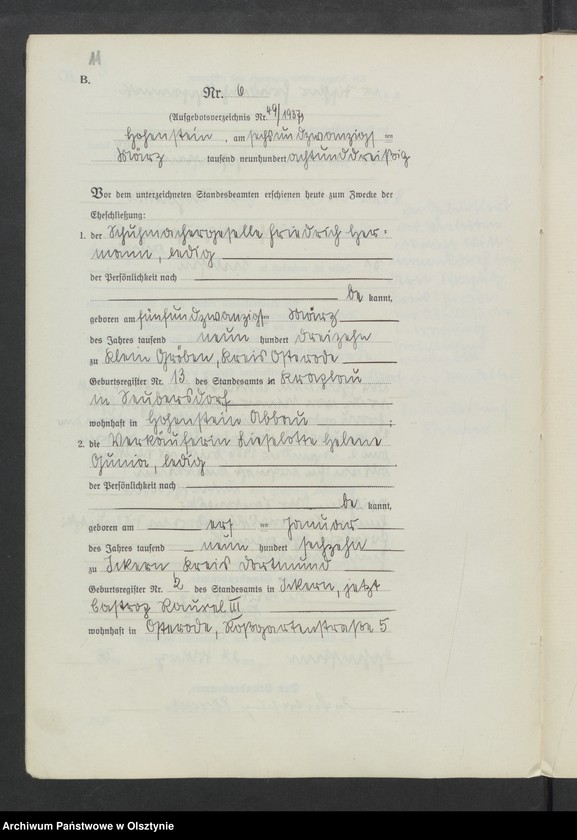 11
B.
Nr. 6
(Aufgebotsverzeichnis Nr. 49/1937)
Hohenstein, am sechsundzwanzigsten
März tausend neunhundert achtunddreißig
Vor dem unterzeichneten Standesbeamten erschienen heute zum Zwecke der
Eheschließung:
1. der Schuhmachergeselle Friedrich Her-
mann, ledig
der Persönlichkeit nach
be kannt,
geboren am fünfundzwanzigsten März
des Jahres tausend neun hundert dreizehn
zu Klein Gröben, Kreis Osterode
Geburtsregister Nr. 13 des Standesamts in Kraplau
in Seubersdorf
wohnhaft in Hohenstein Abbau ;
2. die Verkäuferin Lieselotte Helene
Gunia, ledig
der Persönlichkeit nach
be kannt,
geboren am ersten Januar
des Jahres tausend neun hundert sechzehn
zu Ickern, Kreis Dortmund
Geburtsregister Nr. 2 des Standesamts in Ickern, jetzt
Castrop Rauxel III
wohnhaft in Osterode, Roßgartenstraße 5
Archiwum Państwowe w Olsztynie